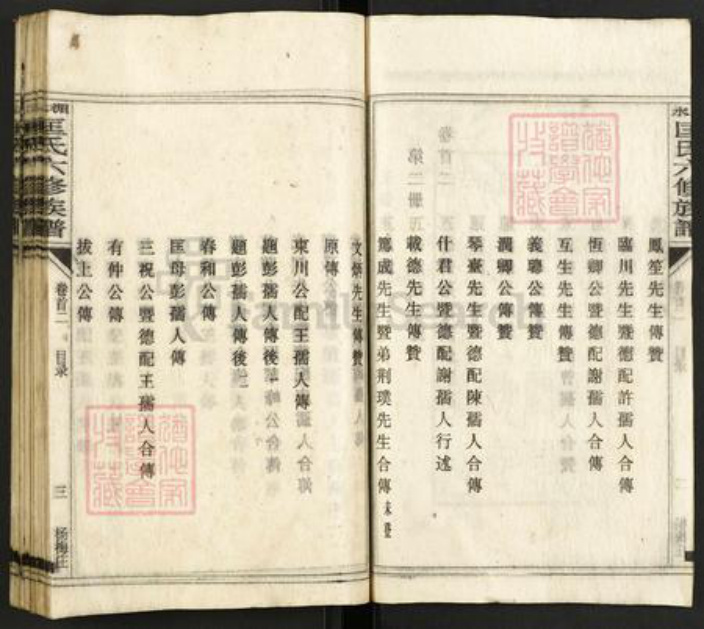 匡氏六修族譜
鳳笙先生傳贊
臨川公暨德配許孺人合傳
恆卿公暨德配謝孺人合傳
互生先生傳贊
義聰公傳贊
潤卿公傳贊
琴臺先生暨德配陳孺人合傳
什君公暨德配謝孺人行述
載德先生傳贊
篤成先生暨弟荆璞先生合傳 未登
文炳先生傳贊
原傳
東川公配王孺人傳
題彭孺人傳後一
題彭孺人傳後二
春和公傳
匡母彭孺人傳
三祝公暨德配王孺人合傳
有仲公傳
拔上公傳
匡氏六修族譜
卷首二
目录
三
杨梅庄
FamilySearch